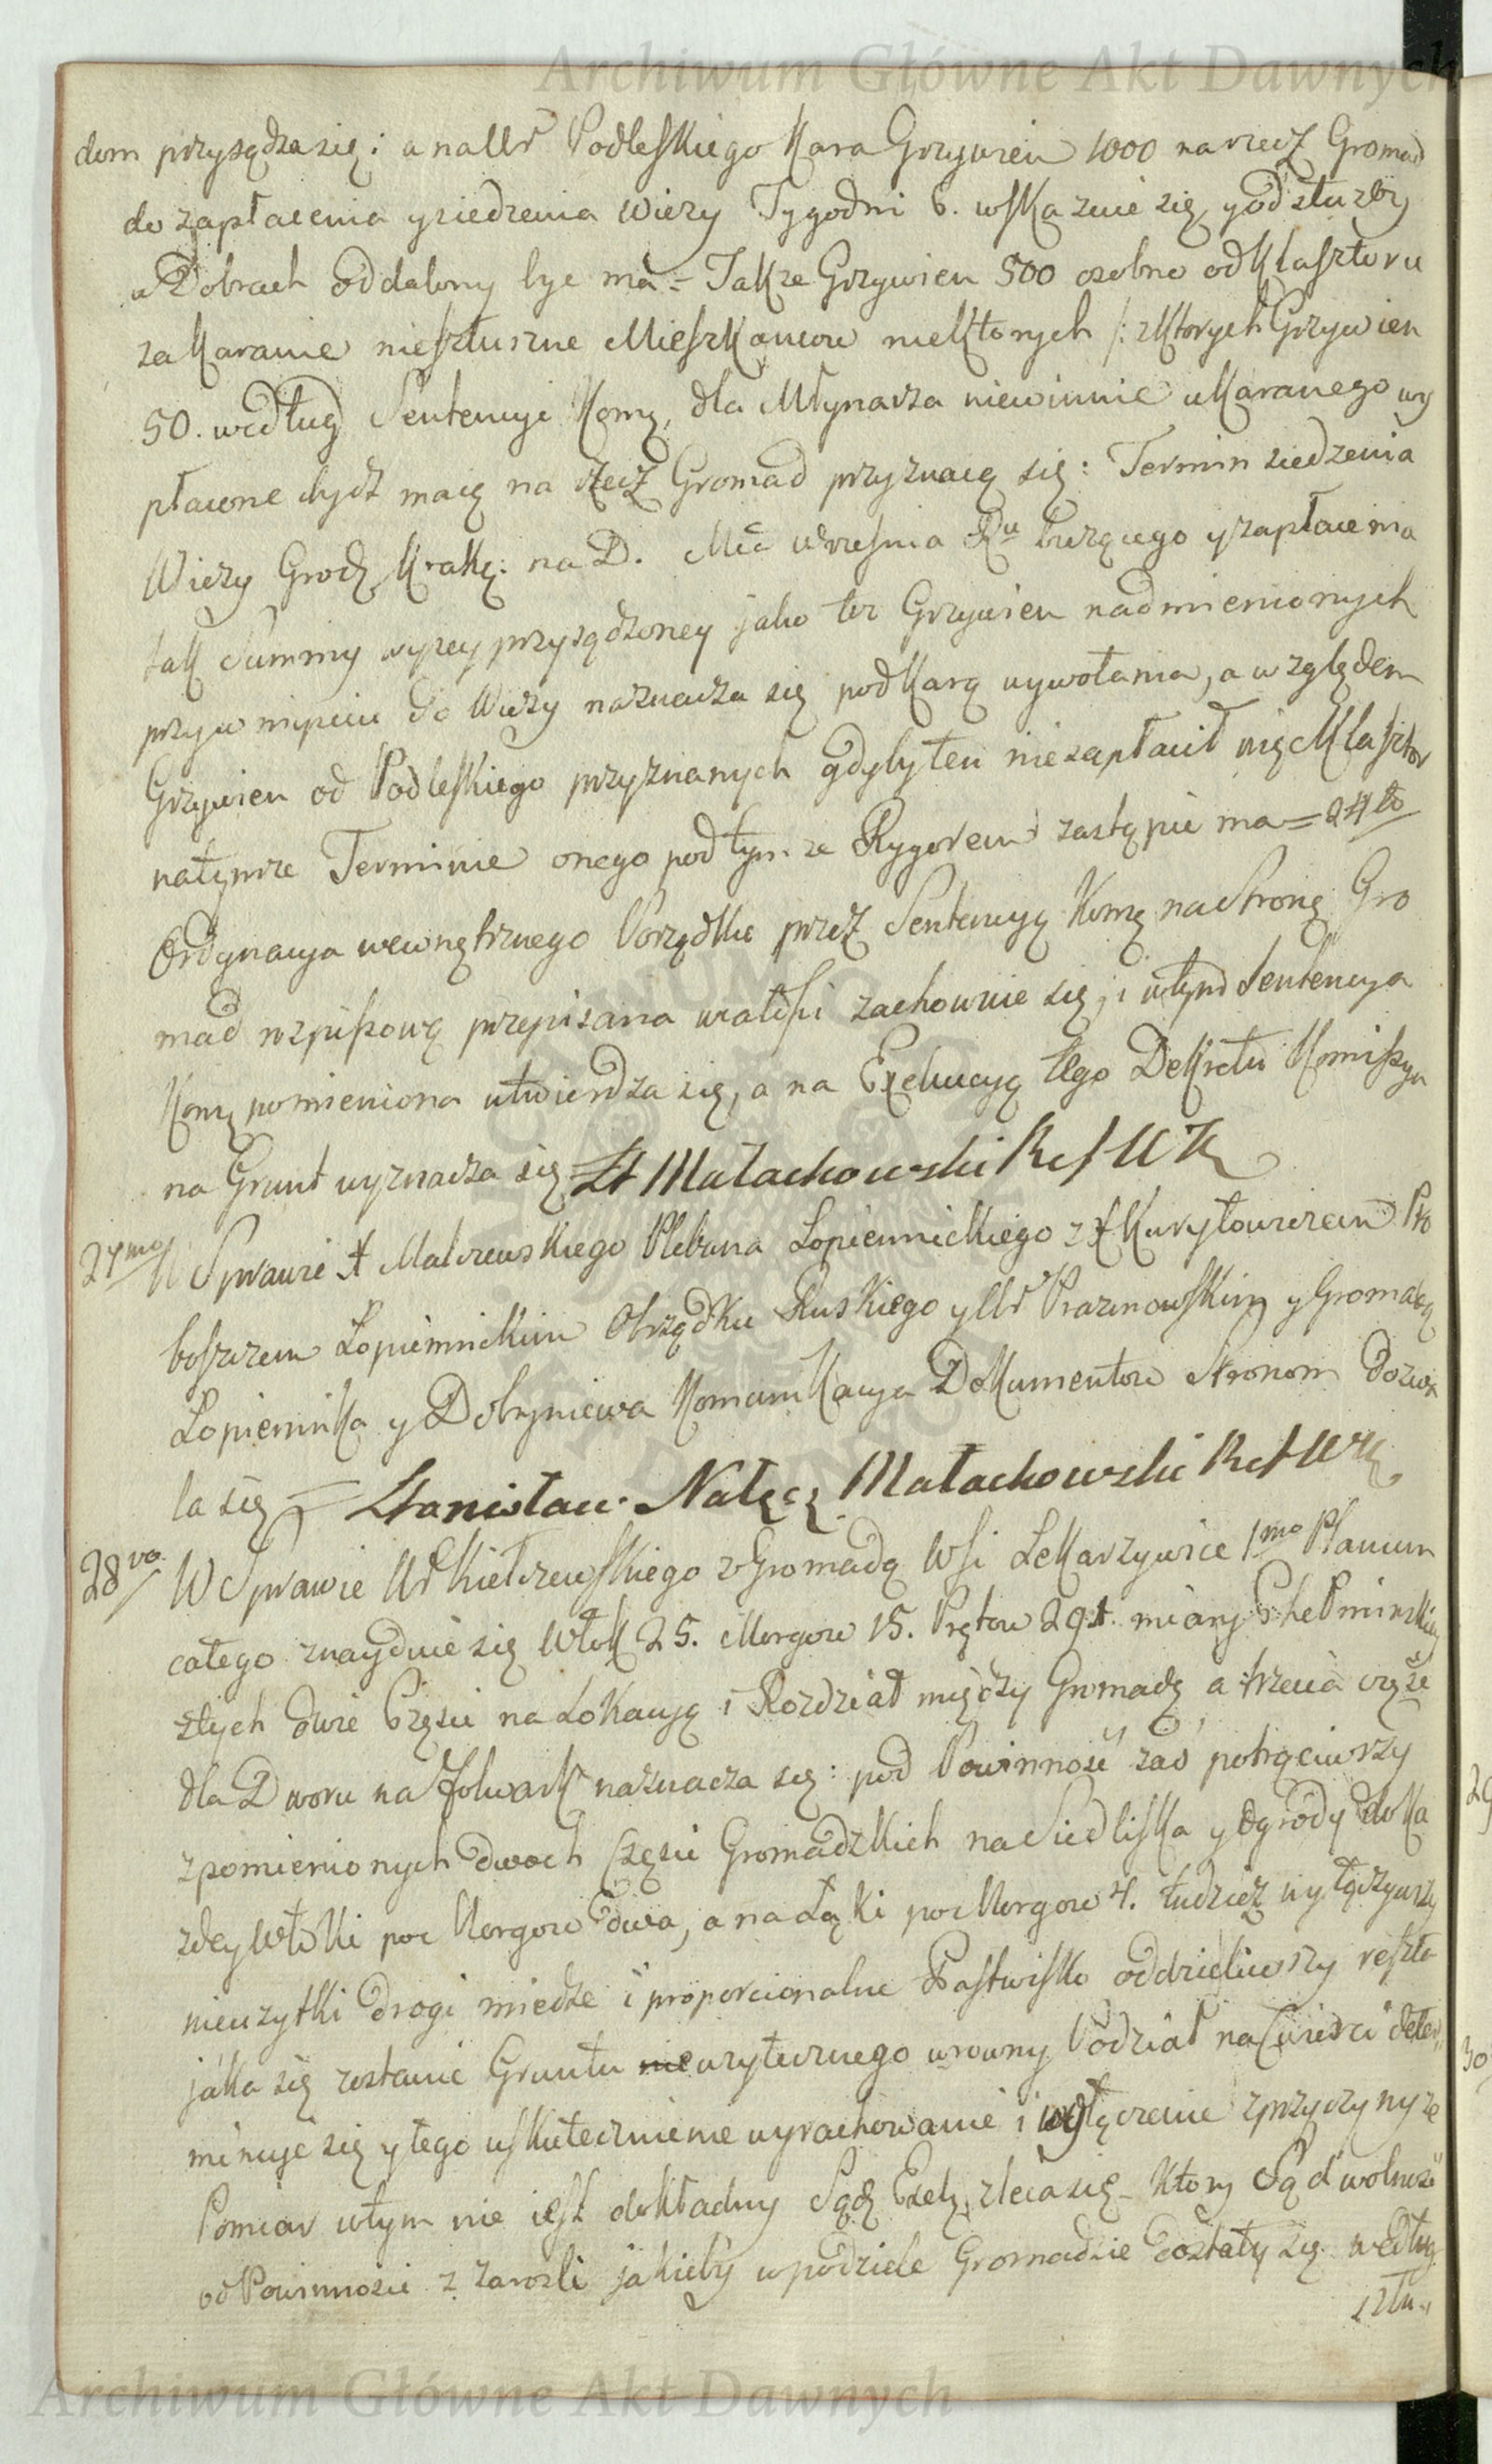 Archiwum Główne Akt Dawnych
dom przysądza się: a na Ur Podleskiego Kara Grzywien 1000 na rzecz Gromad
do zapłacenia y siedzenia Wieży Tygodni 6. wskazuie się, y od służby
w Dobrach oddalony byc ma = Takze Grzywien 500 osobno od Klasztoru
za Karanie niesłuszne Mieszkancow niektorych /: z ktorych Grzywien
50. według Sentencyi Komą, dla Młynarza niewinnie ukaranego wy
płacone bydź maią na rzecz Gromad przyznaią się: Termin siedzenia
Wieży Grodz Krakę: na D. Mca Wrzesnia Ru bieżącego y zapłacenia
tak Summy wyzey przysądzoney jako tez Grzywien nadmienionych
przy wnijściu do Wieży naznacza się pod Karą wywołania, a względem
Grzywien od Podleskiego przyznanych gdyby ten nie zapłacił więc Klasztor
na tymze Terminie onego pod tym ze Rygorem zastąpic ma = 24to
Ordynacya wewnętrznego Porządku przez Sentencyą Komą na Stronę Gro
mad rozpissową przepisana w całości zachowuie się, i w tym Sentencya
Komą pomieniona utwierdza się, a na Exekucyą tego Dekretu Komissya
na Grunt wyznacza się = St Małachowski Ref WK
27mo W Sprawie X Malczewskiego Plebana Łopiennickiego z X Kuryłowiczem Pro
boszczem Łopiennickim Obrządku Ruskiego y Ur Prazmowskim y Gromadą
Łopiennika y Dobryniewa Komunikacya Dokumentow Stronom dozwa
la się = Stanisław Nałęcz Małachowski Ref WK
28vo W Sprawie Ur Kiełczewskiego z Gromadą Wsi Lekarzywice 1mo Planum
całego znayduie się Włok 25. Morgow 15. Prętow 291. miary Chełminskiey
z tych dwie Części na Lokacyą i Rozdział między Gromadę, a trzecia częśc
dla Dworu na Folwark naznacza się: pod Powinność zaś potrąciwszy
z pomienionych dwoch Części Gromadzkich na Siedliska y Ogrody do ka
zdey Włoki po Morgow dwa, a na Łąki po Morgow 4. tudzież wyłączywszy
nieuzytki drogi miedze i proporcionalne Pastwisko oddzieliwszy reszta
jaka się zostanie Gruntu uzytecznego w rowny Podział na Cwierci deter,,
minuje się y tego uskutecznienie wyrachowanie i wyłączenie z przyczyny ze
Pomiar w tym nie iest dokładny Sądz Exek. zleca się Ktory Sąd wolnosc
od Powinnosci z zarosli jakieby w podziele Gromadzie dostały się według
słu,,
Archiwum Główne Akt Dawnych